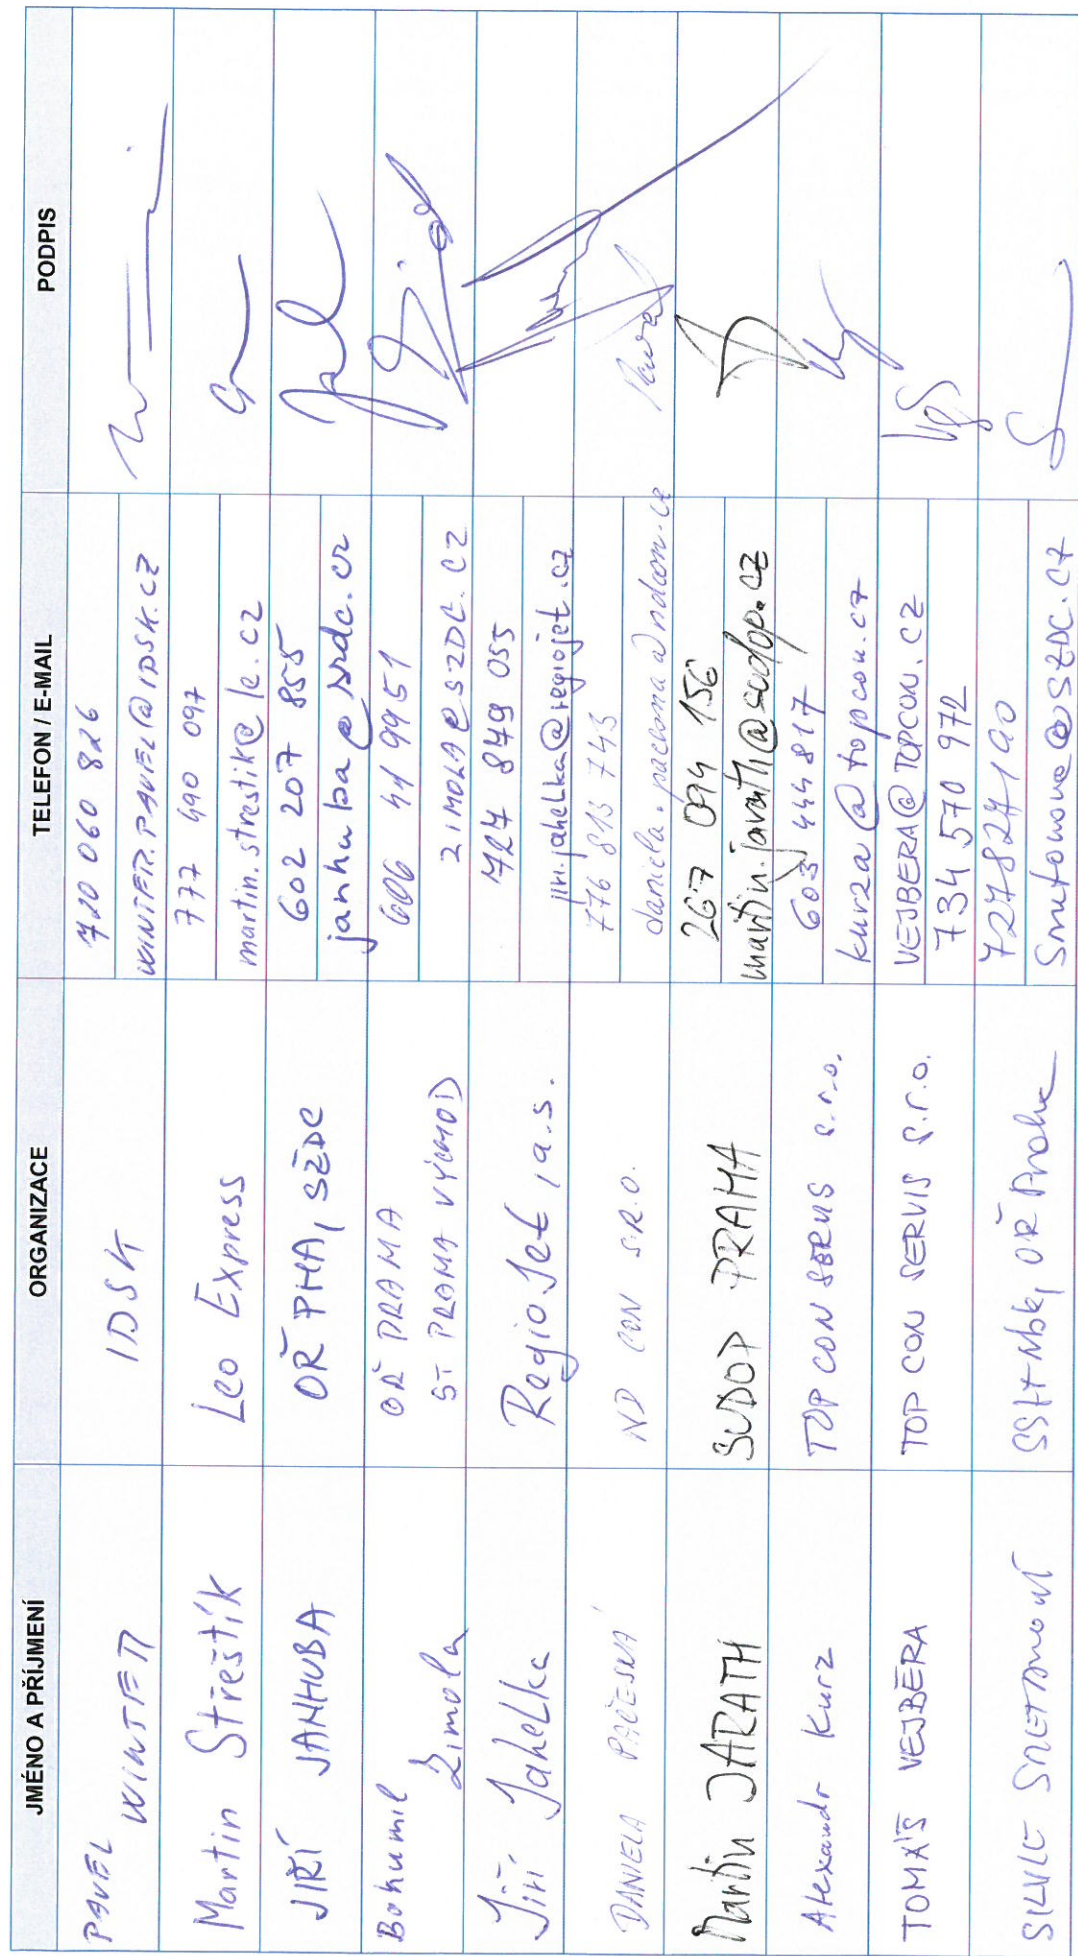 JMÉNO A PŘÍJMENÍ ORGANIZACE TELEFON / E-MAIL PODPIS
PAVEL
WINTER
IDSK
720 060 826
WINTER.PAVEL@IDSK.CZ
Martin Střeštík
Leo Express
777 490 097
martin.strestik@le.cz
JIŘÍ JANHUBA
OŘ PHA, SŽDC
602 207 855
janhuba@szdc.cz
Bohumil
Zimola
OŘ PRAHA
ST PRAHA VÝCHOD
606 41 9951
ZIMOLA@SZDC.CZ
Jiří Jahelka
RegioJet, a.s.
724 849 055
jiri.jahelka@regiojet.cz
DANIELA
ND CON S.R.O.
776 813 743
Martin JARATH
SUDOP PRAHA
267 094 156
martin.jarath@sudop.cz
Alexandr Kurz
TOP CON SERVIS s.r.o.
603 444 817
kurza@topcon.cz
TOMÁŠ VEJBĚRA
TOP CON SERVIS s.r.o.
VEJBERA@TOPCON.CZ
734 570 972
OŘ Praha
727827190
@SZDC.CZ